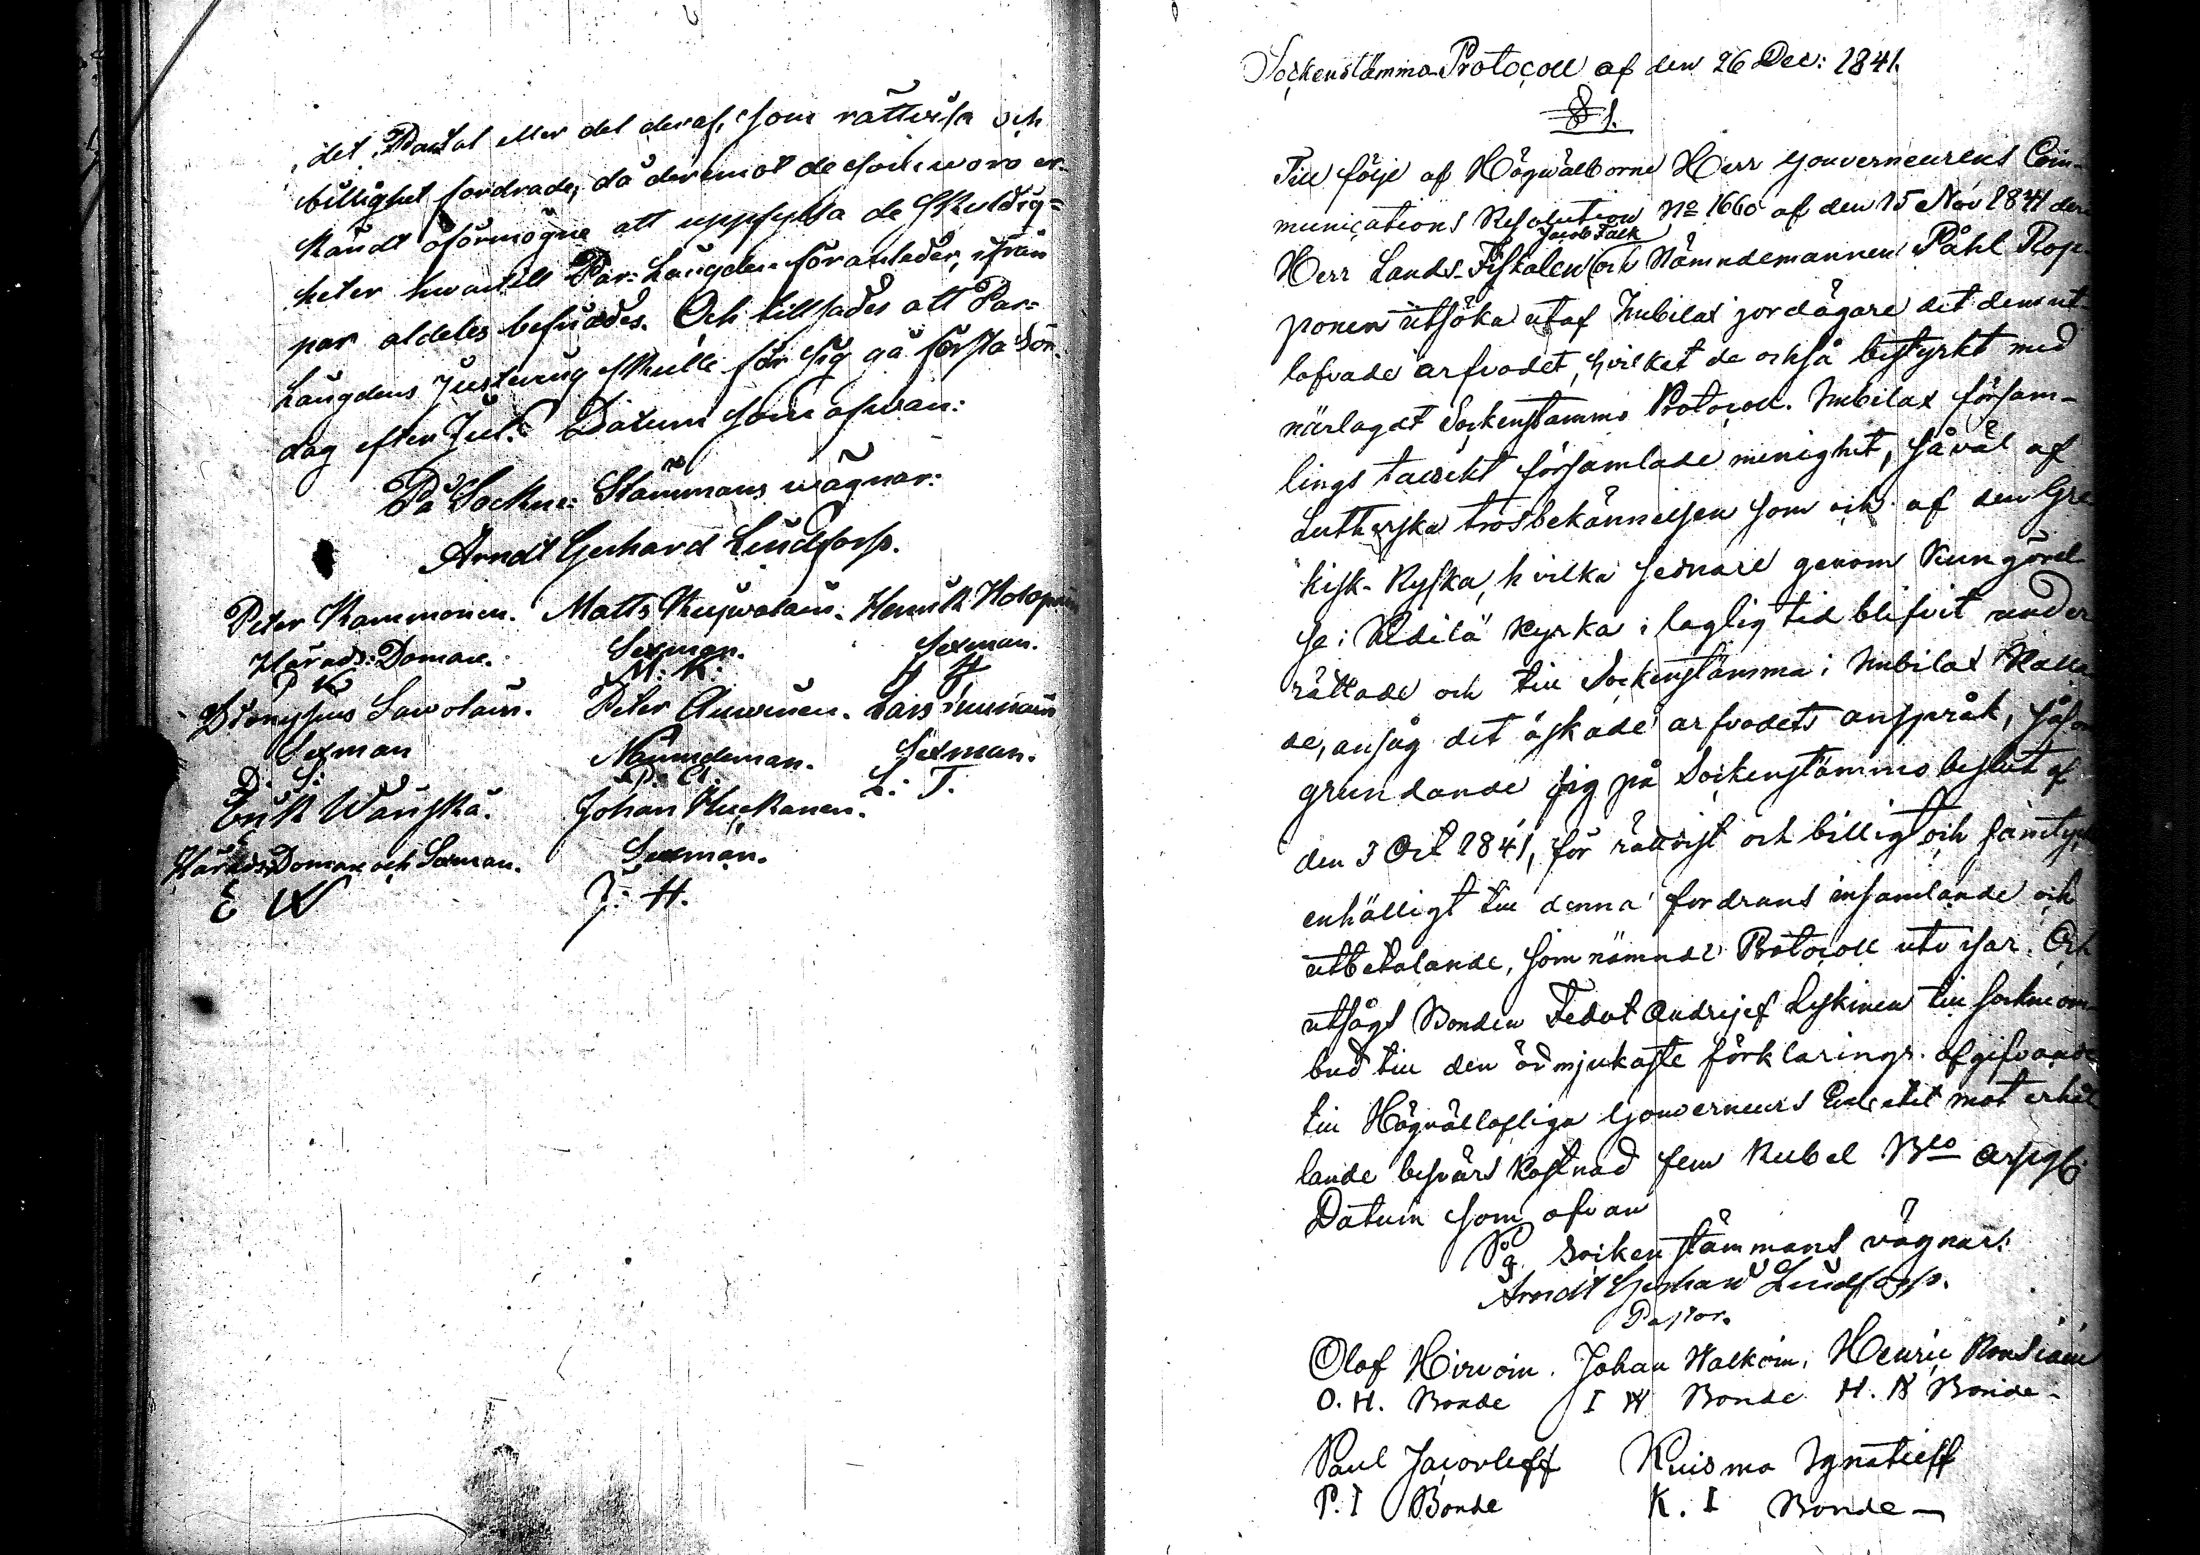 det Partal eller del deraf, som rättvisa och
billighet fordrade, då deremot de som woro er-
kandt oförmögne att uppfylla de skuldig-
heter hwartill Par: Laugden föranleder, ifrån
par aldeles befriades. Och tillsades att Par-
Laugdens Justering skulle för sig gå första Sön-
dag efter Jul. Datum som ofwan:
På Sockne: Stämmans wägnar:
Arndt Gerhard Lindfors.
Peter Kammonen. Matts Henrik
Härads: Doman. Sexman. Sexman.
P K M: K: H H
Dionysius Sawolain. Peter Lars
Sexman Nämndeman. Sexman.
D. S: P: A. L: T.
Erik Wänskä. Johan Huckanen.
Härads Doman och Sexman. Sexman.
E W J: H.
Sockenstämma Protocoll af den 26 Dec: 1841.
§ 1.
Till följe af Högwälborne Herr Gouverneurens Com-
municationsResolution No 1660 af den 15 Nov 1841 der
Jacob Falk
Herr Lands-Fiskalen och Nämndemannen Påhl Rop-
ponen utsöka utaf Inbilax jordägare det dem ut-
lofvade arfvodet, hvilket de också bestyrkt med
närlagdt Sockenstämmo Protocoll. Imbilax försam-
lings talrikt församlade menighet, såväl af
Lutherska trosbekännelsen som och af den Gre
kisk-Ryska, hvilka sednare genom Kungörel-
se i Kidilä Kyrka i laglig tid blifvit under
rättade och till Sockenstämma i Imbilax Kalla
de, ansåg det äskade arfvodets anspråk, såsom
grundande sig på Sockenstämmo beslut af
den 3 Oct 1841, för rättvist och billigt och samtyckte
enhälligt till denna fordrans insamlande och
utbetalande, som nämnde Protocoll utvisar. Och
utsågs Bonden Fedot Andrejef Leskinen till sockneom-
bud till den ödmjukaste förklarings afgifvande
till Högvällofliga Gouverneurs Embetet mot erhål
lande besvärs kostnad fem Rubel Bco Assigb:
Datum som ofvan
På Sockenstämmans vägnar:
Arndt Gerhard Lindfors.
Pastor.
Olof Hirvoin. Johan Walkoin. Henric
O. H. Bonde I W Bonde H. R Bonde-
Paul Jacovleff Kuisma Ignatieff
P. I Bonde K. I Bonde-